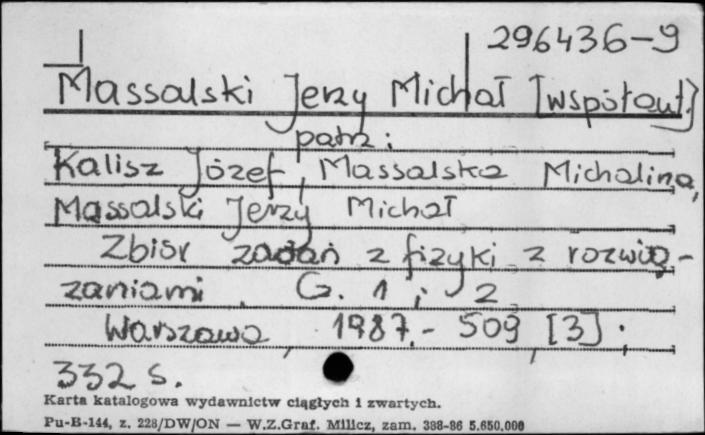 296436-9
Massalski Jerzy Michał [współaut.]
patrz:
Kalisz Józef, Massalska Michalina,
Massalski Jerzy Michał
Zbiór zadań z fizyki z rozwią-
zaniami. G. 1 i 2
Warszawa, 1987.- 509, [3];
332 s.
Karta katalogowa wydawnictw ciągłych i zwartych.
Pu-B-144, z. 228/DW/ON — W.Z.Graf. Milicz, zam. 388-86 5.650.000